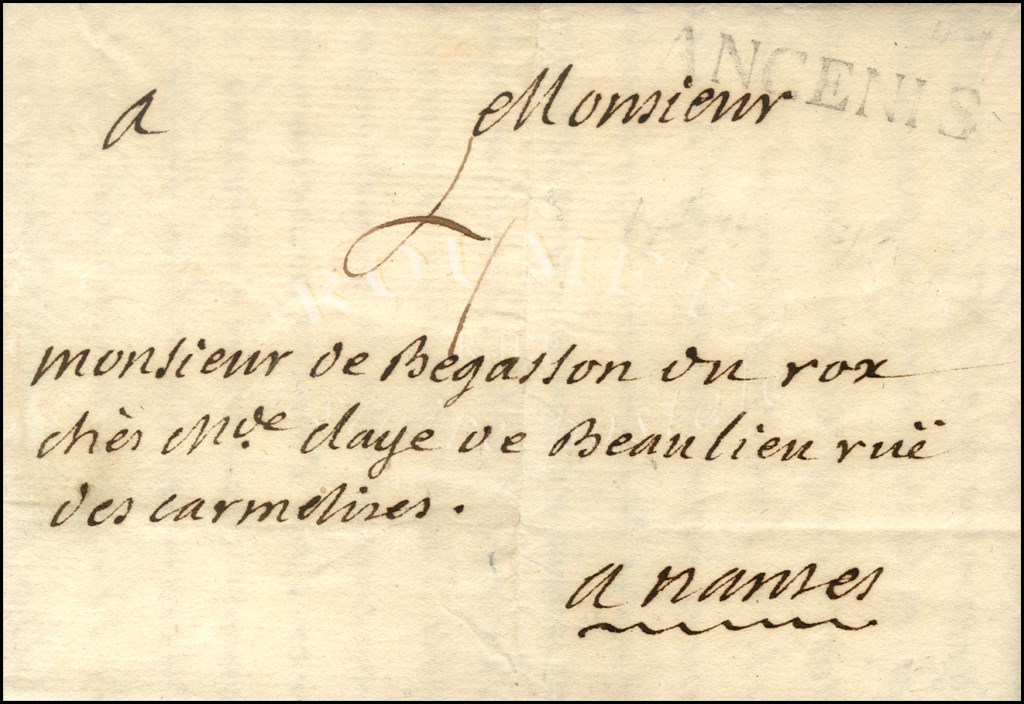 ANCENIS
a Monsieur
monsieur de Begasson du rox
chès Mde. daye de Beaulieu ruë
des carmelites.
a nantes
ROUMET